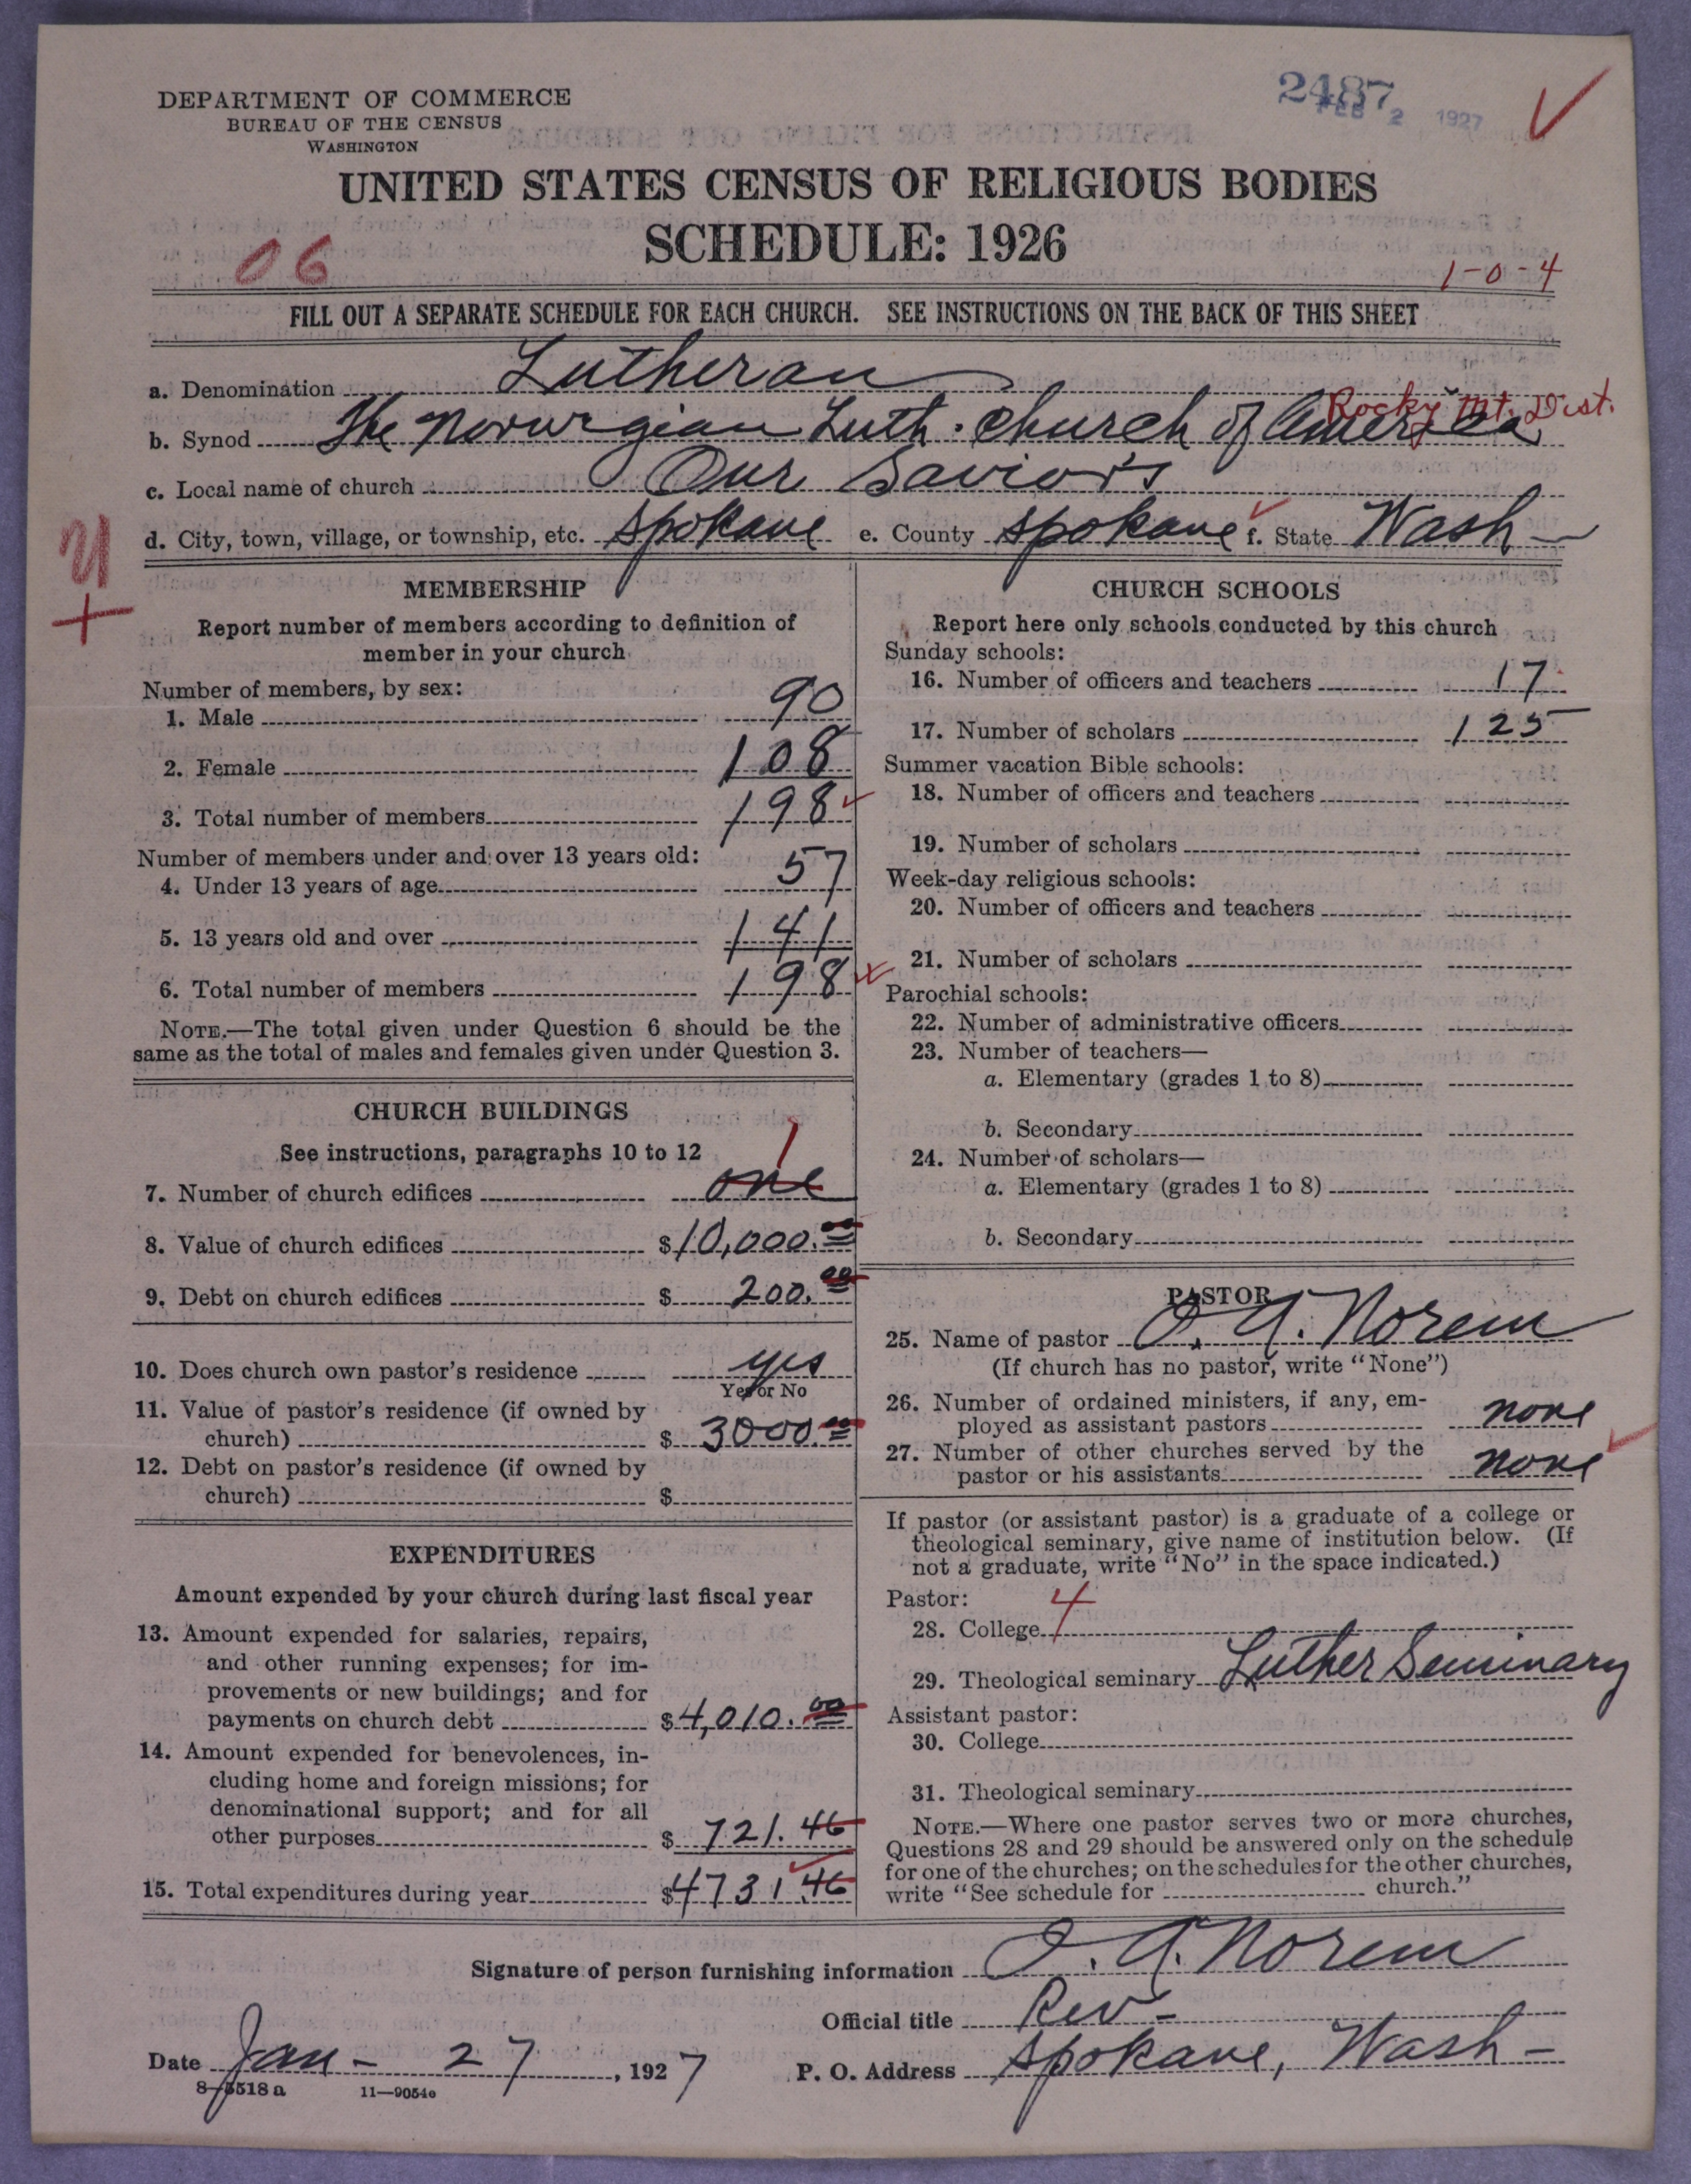 DEPARTMENT OF COMMERCE
BUREAU OF THE CENSUS
WASHINGTON
2487
FEB 2 1927
UNITED STATES CENSUS OF RELIGIOUS BODIES
SCHEDULE: 1926
06
1-0-4
FILL OUT A SEPARATE SCHEDULE FOR EACH CHURCH. SEE INSTRUCTIONS ON THE BACK OF THIS SHEET
a. Denomination Lutheran
Rocky Mt. Dist.
b. Synod The Norwegian Luth. Church of America
c. Local name of church Our Savior's
d. City, town, village, or township, etc. Spokane e. County Spokane f. State Wash
MEMBERSHIP
Report number of members according to definition of
member in your church
Number of members, by sex:
1. Male 90
2. Female 108
3. Total number of members 198
Number of members under and over 13 years old:
4. Under 13 years of age 57
5. 13 years old and over 141
6. Total number of members 198
NOTE.—The total given under Question 6 should be the
same as the total of males and females given under Question 3.
CHURCH BUILDINGS
See instructions, paragraphs 10 to 12
1
7. Number of church edifices one
8. Value of church edifices $10,000.00
9. Debt on church edifices $ 200.00
10. Does church own pastor's residence yes
Yes or No
11. Value of pastor's residence (if owned by
church) $ 3000.00
12. Debt on pastor's residence (if owned by
church) $
EXPENDITURES
Amount expended by your church during last fiscal year
13. Amount expended for salaries, repairs,
and other running expenses; for im-
provements or new buildings; and for
payments on church debt $4,010.00
14. Amount expended for benevolences, in-
cluding home and foreign missions; for
denominational support; and for all
other purposes $ 721.46
15. Total expenditures during year $4731.46
CHURCH SCHOOLS
Report here only schools conducted by this church
Sunday schools:
16. Number of officers and teachers 17
17. Number of scholars 125
Summer vacation Bible schools:
18. Number of officers and teachers
19. Number of scholars
Week-day religious schools:
20. Number of officers and teachers
21. Number of scholars
Parochial schools:
22. Number of administrative officers
23. Number of teachers—
a. Elementary (grades 1 to 8)
b. Secondary
24. Number of scholars—
a. Elementary (grades 1 to 8)
b. Secondary
PASTOR
25. Name of pastor O. A. Norem
(If church has no pastor, write "None")
26. Number of ordained ministers, if any, em-
ployed as assistant pastors none
27. Number of other churches served by the
pastor or his assistants none
If pastor (or assistant pastor) is a graduate of a college or
theological seminary, give name of institution below. (If
not a graduate, write "No" in the space indicated.)
Pastor:
28. College 4
29. Theological seminary Luther Seminary
Assistant pastor:
30. College
31. Theological seminary
NOTE.—Where one pastor serves two or more churches,
Questions 28 and 29 should be answered only on the schedule
for one of the churches; on the schedules for the other churches,
write "See schedule for church."
Signature of person furnishing information O. A. Norem
Official title Rev-
Date Jan- 27, 1927 P. O. Address Spokane, Wash-
8-5518 a 11-9054e